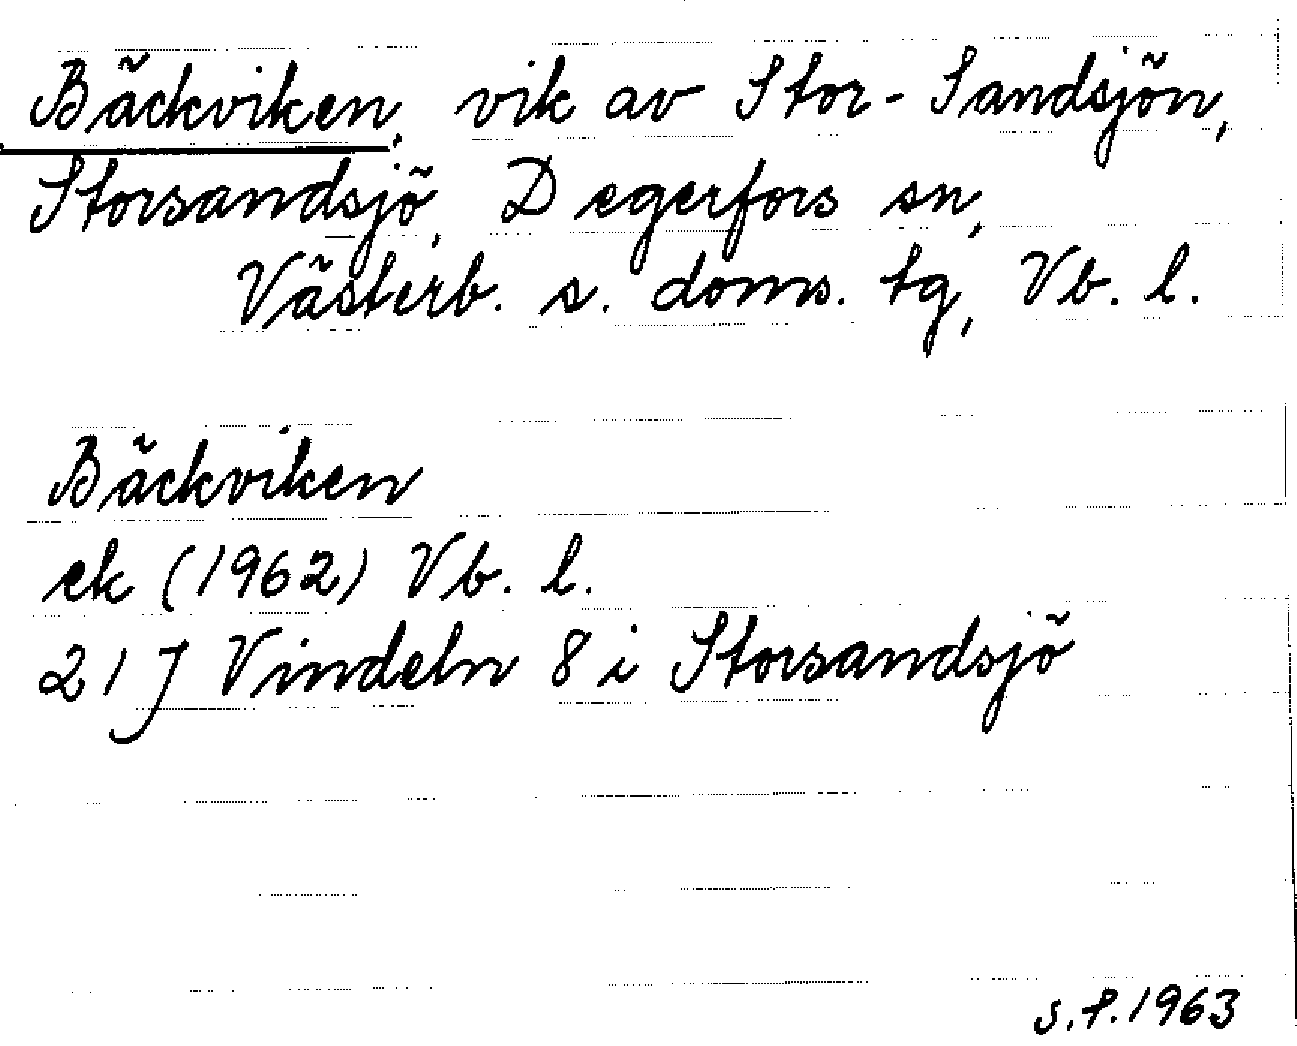 Bäckviken, vik av Stor-Sandsjön,
Storsandsjö, Degerfors sn,
Västerb. s. doms. tg, Vb. l.
Bäckviken
ek (1962) Vb. l.
21 J Vindeln 8 i Storsandsjö
S.P. 1963